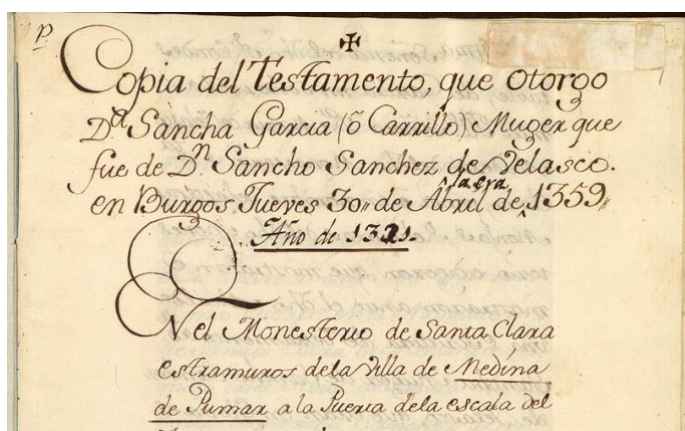 P.
✠
Copia del Testamento, que otorgo
Dª Sancha Garcia (ō Carrillo) Muger que
fue de Dⁿ. Sancho Sanchez de Velasco.
en Burgos Jueves 30,, de Abril de ^la era 1359,,
Año de 1321.
En el Monesterio de Santa Clara
estramuros dela Villa de Medina
de Pumar a la Puerta dela escala del